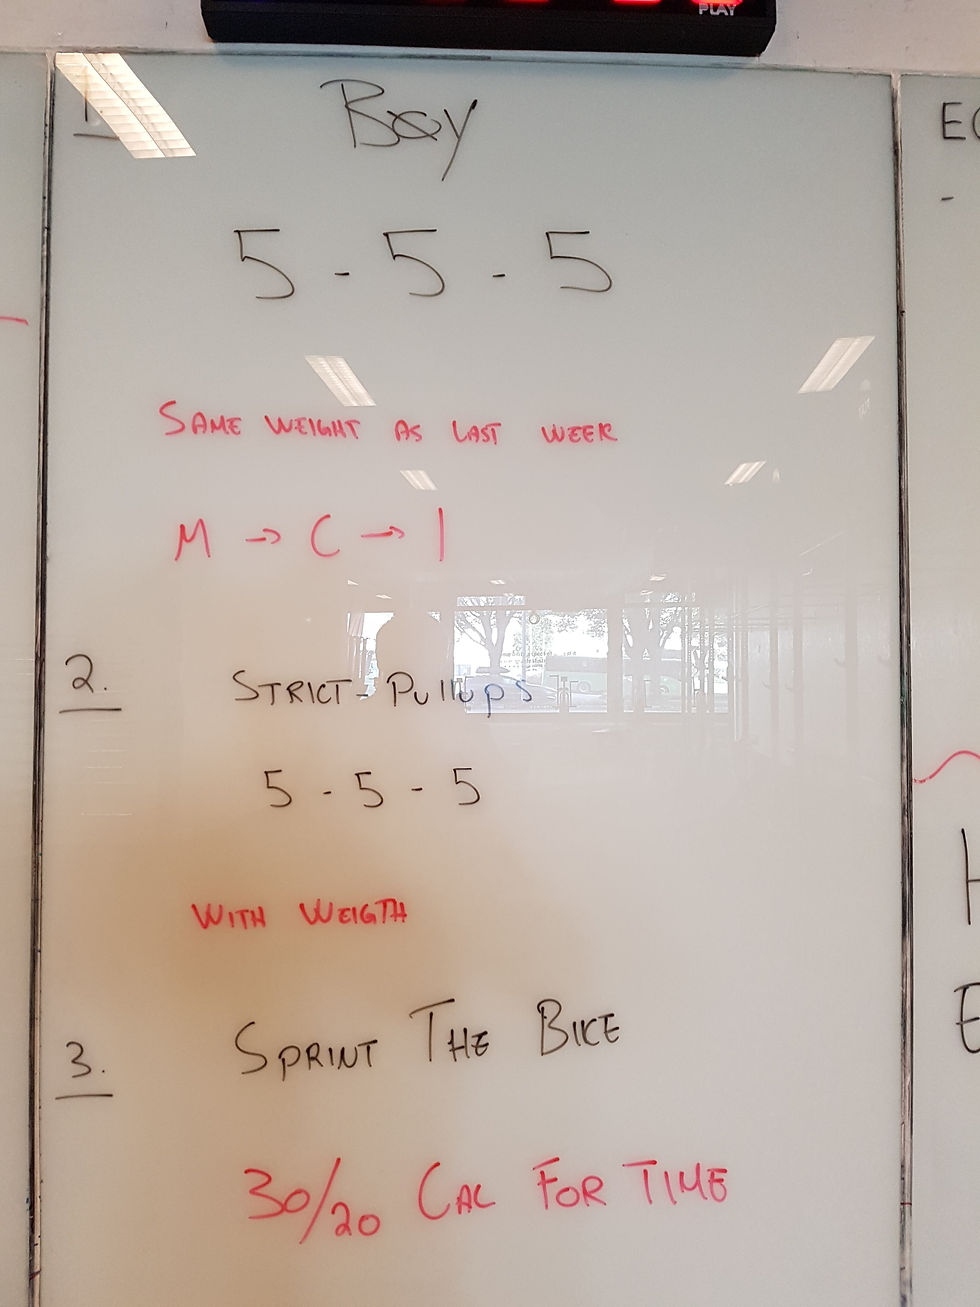 PLAY
1.
Bay
5 - 5 - 5
SAME WEIGHT AS LAST WEEK
M → C → I
2. STRICT-PUllUpS
5 - 5 - 5
WITH WEIGTH
3. SPRINT THE BIKE
30/20 CAL FOR TIME